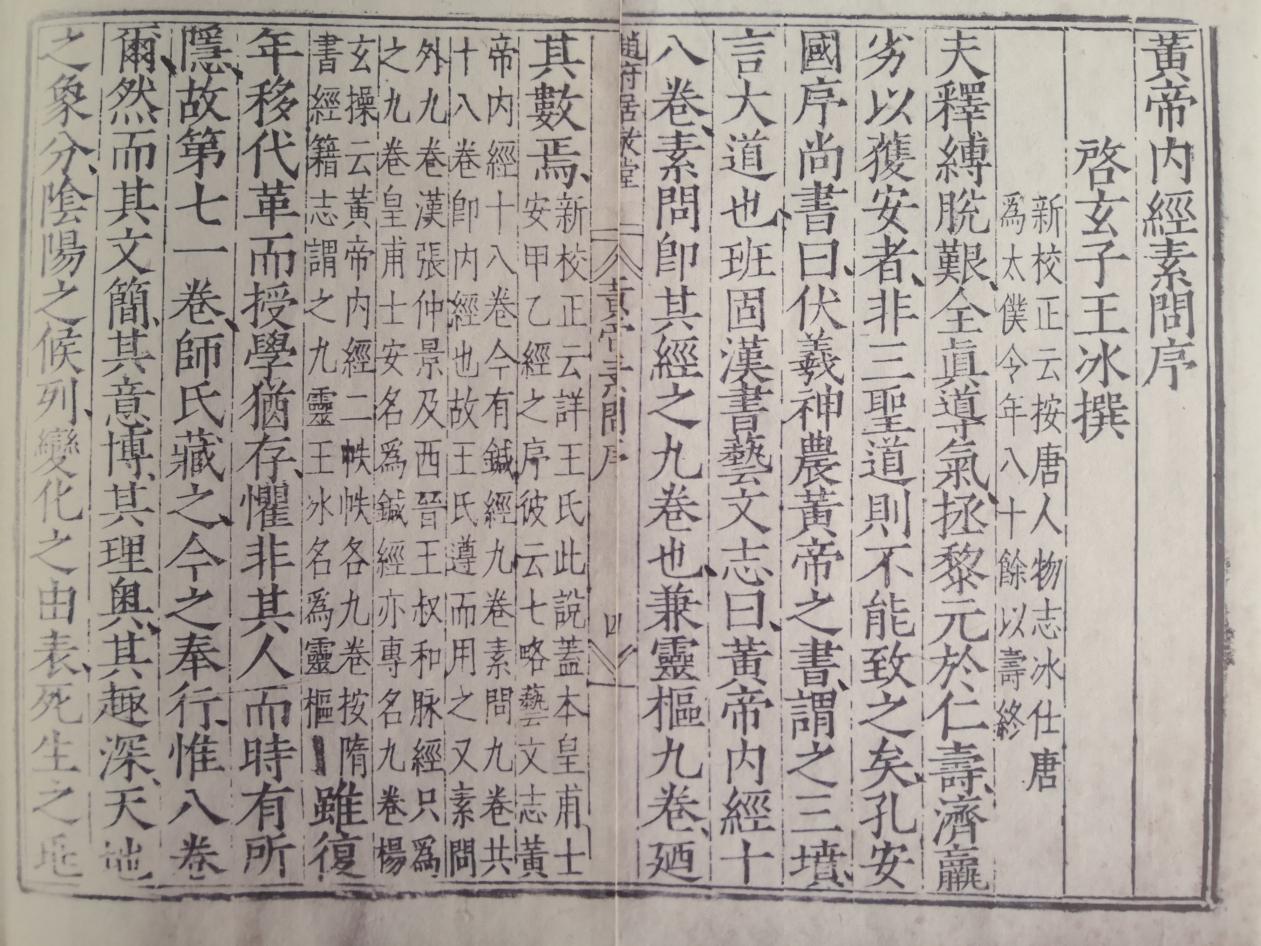 黃帝内經素問序
啓玄子王冰撰
新校正云按唐人物志冰仕唐
爲太僕令年八十餘以壽終
夫釋縛脫艱、全眞導氣、拯黎元於仁壽、濟羸
劣以獲安者、非三聖道則不能致之矣、孔安
國序尚書曰、伏羲神農黃帝之書、謂之三墳、
言大道也、班固漢書藝文志曰、黃帝内經十
八卷、素問卽其經之九卷也、兼靈樞九卷、廼
趙府居敬堂
黃帝素問序
四
其數焉、
新校正云詳王氏此說蓋本皇甫士
安甲乙經之序彼云七略藝文志黃
帝内經十八卷今有鍼經九卷素問九卷共
十八卷卽内經也故王氏遵而用之又素問
外九卷漢張仲景及西晉王叔和脉經只爲
之九卷皇甫士安名爲鍼經亦專名九卷楊
玄操云黃帝内經二帙帙各九卷按隋
書經籍志謂之九靈王冰名爲靈樞
雖復
年移代革而授學猶存、懼非其人而時有所
隱、故第七一卷、師氏藏之、今之奉行、惟八卷
爾、然而其文簡、其意博、其理奥、其趣深、天地
之象分、陰陽之候列、變化之由表、死生之地